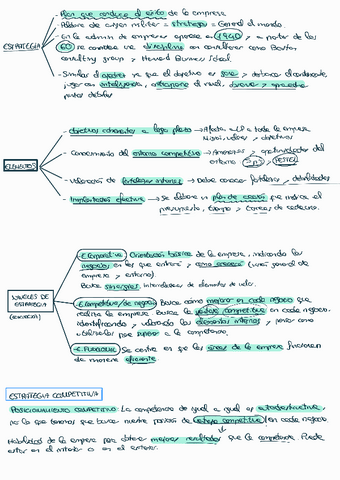 - Plan que conduce al éxito de la empresa.
- Palabra de origen militar = stratego = General al mando.
- En la admon de empresas aparece en 1940 → a partir de los
60 se convierte en disciplina en consultoras como Boston
consulting group y Harvard Business School.
- Similar al ajedrez ya que el objetivo es ganar y
jugar con inteligencia, anticiparse al rival,
ESTRATEGIA
- Objetivos a largo plazo → Afecta a toda la empresa
Misión, valores y objetivos
- Conocimiento del entorno competitivo → Amenazas y oportunidades del
entorno → PESTEL
- Valoración de fortalezas internas → Debe conocer fortalezas y debilidades
- Implantación efectiva → Se elabora un plan de acción que indica el
presupuesto, tiempo y
ELEMENTOS
- E. Corporativa: Orientación básica de la empresa, indicando los
negocios en los que entrará y cómo crecerá (visión general de
empresa y entorno)
Busca sinergias:
NIVELES DE
ESTRATEGIA
- E. Competitiva/de negocio: Busca cómo mejorar en cada negocio que
realiza la empresa. Busca la ventaja competitiva en cada negocio,
identificando y valorando los internos y
a la competencia.
- E. Funcional: Se centra en que las áreas de la empresa funcionen
de manera eficiente
ESTRATEGIA COMPETITIVA
POSICIONAMIENTO COMPETITIVO: La competencia de igual a igual es autodestructiva,
por lo que tenemos que buscar nuestra posición de ventaja competitiva en cada negocio.
Habilidad de la empresa para obtener mejores resultados que la competencia. Puede
estar en el interior o en el exterior.